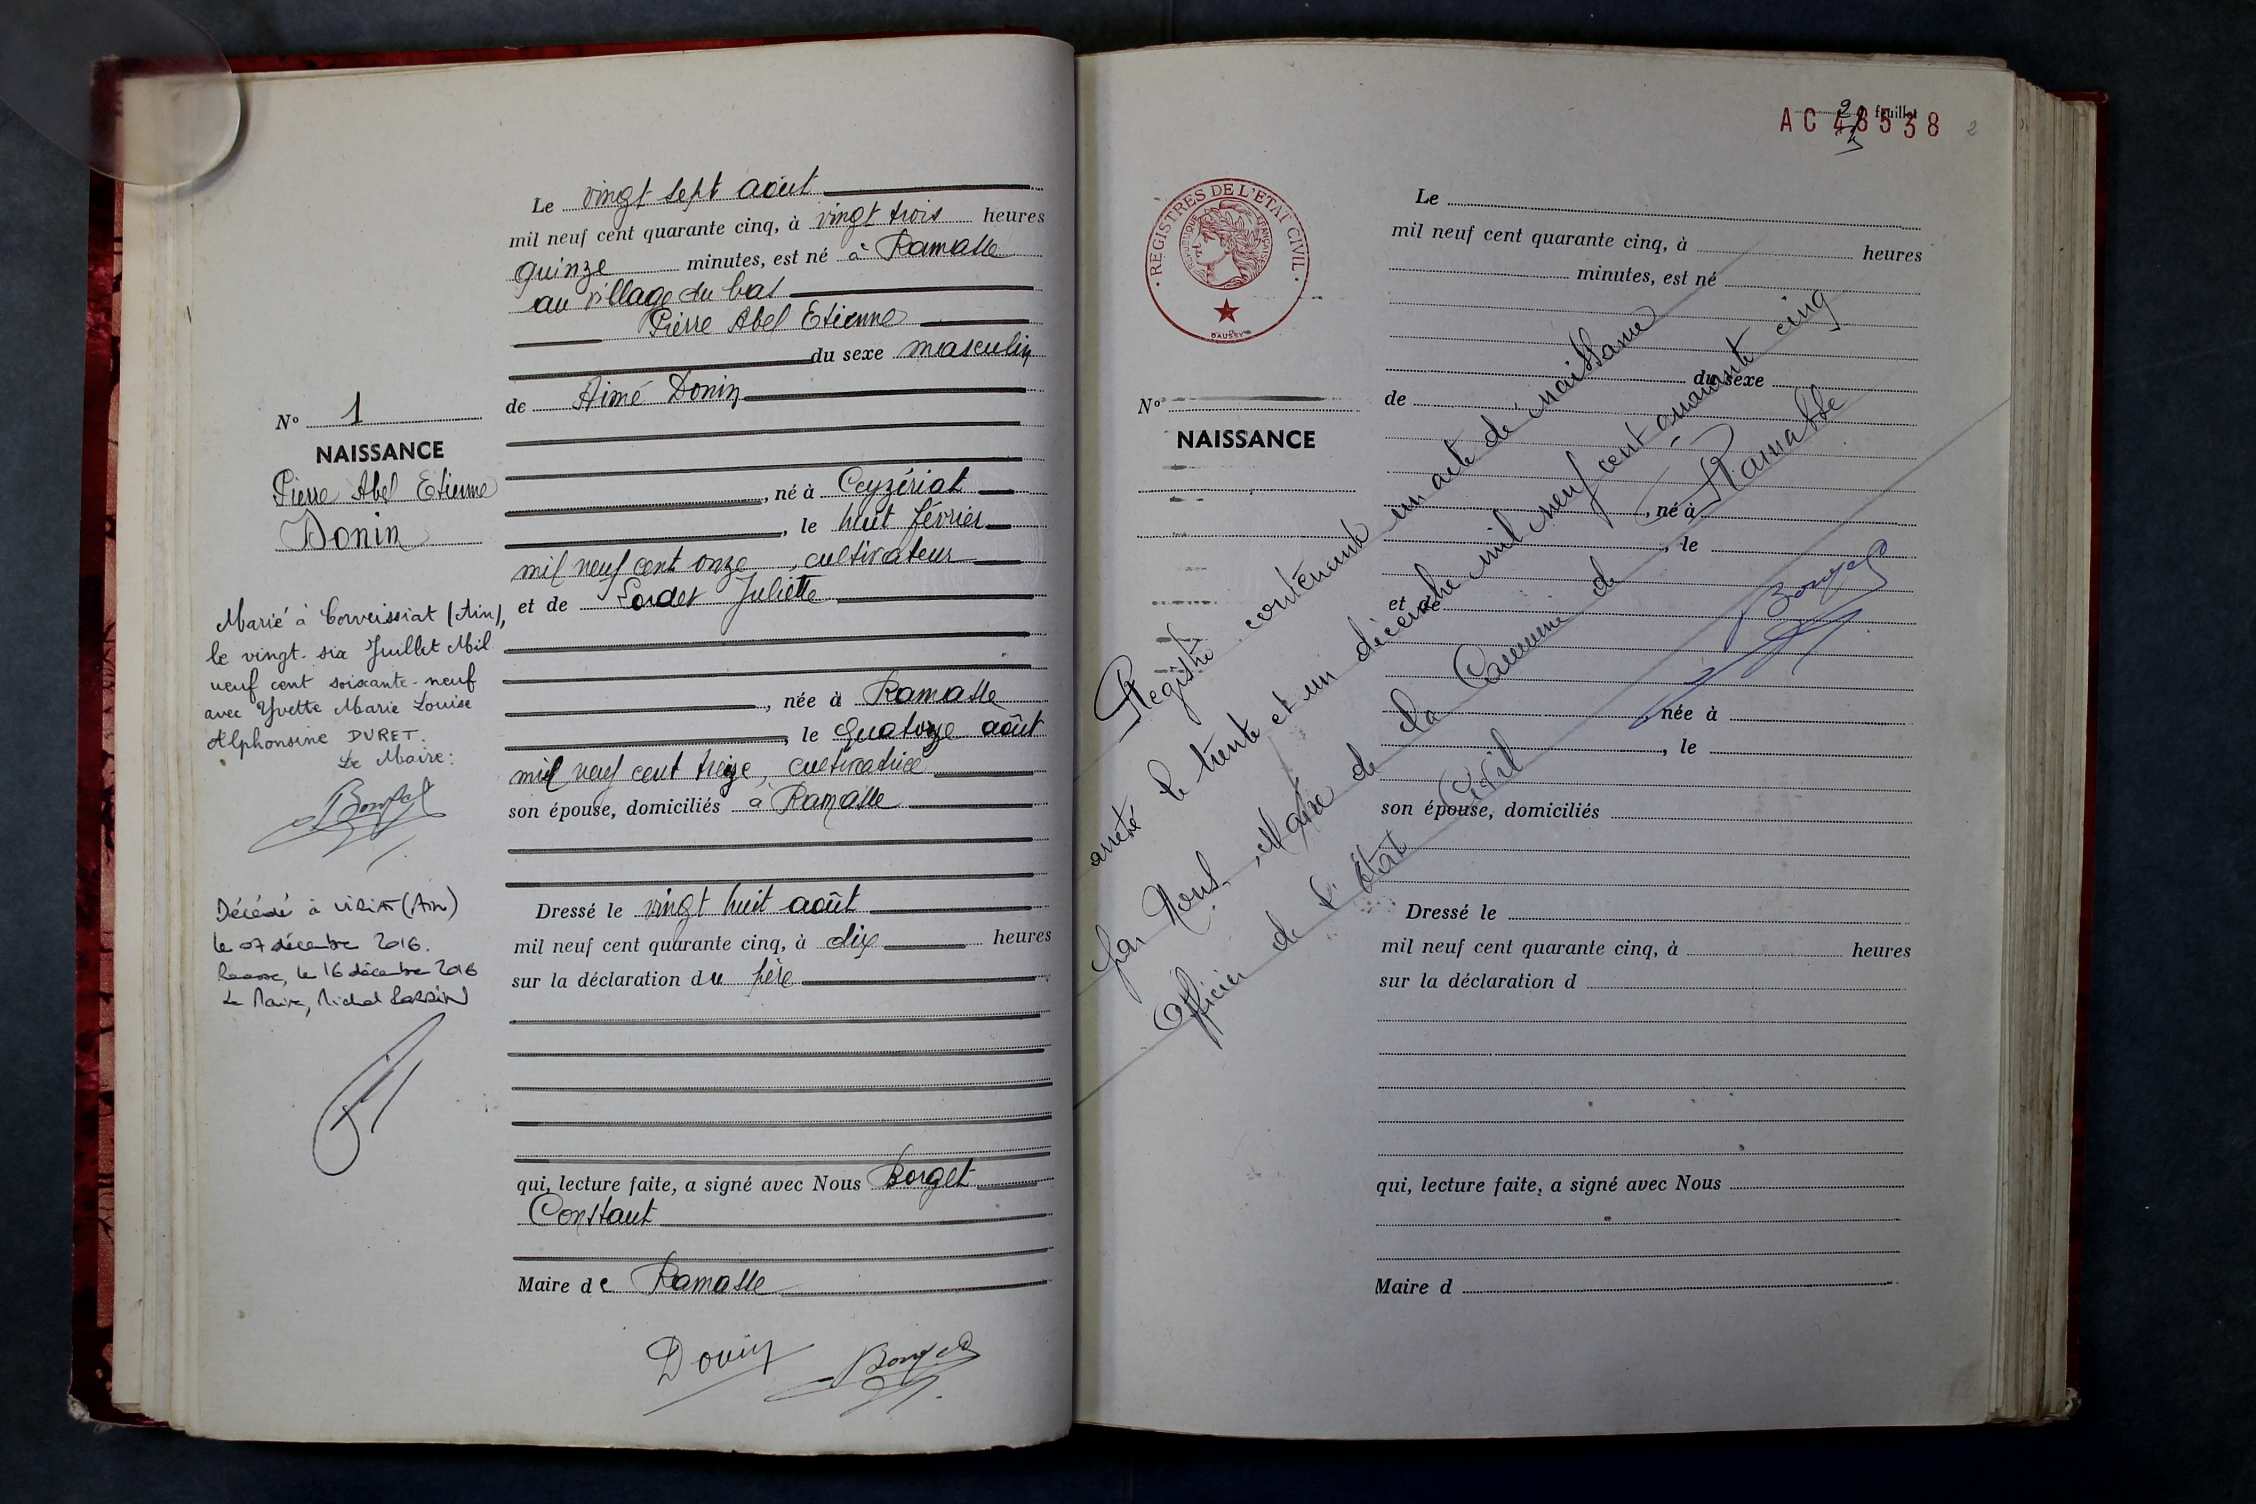 N° 1
NAISSANCE
Pierre Abel Etienne
Donin
Marié à Corveissiat (Ain),
le vingt-six Juillet Mil
neuf cent soixante-neuf
avec Yvette Marie Louise
Alphonsine DURET.
Le Maire:
Décédé à VIRIAT (Ain)
le 07 décembre 2016.
Ramasse, le 16 décembre 2016
Le Maire, Michel
Le vingt sept août
mil neuf cent quarante cinq, à vingt trois heures
quinze minutes, est né à Ramasse
au village du bas
Pierre Abel Etienne
du sexe masculin
de Aimé Donin
, né à Ceyzériat
, le huit février
mil neuf cent onze, cultivateur
et de Sordet Juliette
, née à Ramasse
, le quatorze août
mil neuf cent treize, cultivatrice
son épouse, domiciliés à Ramasse
Dressé le vingt huit août
mil neuf cent quarante cinq, à dix heures
sur la déclaration du père
qui, lecture faite, a signé avec Nous Borget
Constant
Maire de Ramasse
Donin
AC 48538
2
feuillet
2
REGISTRES DE L'ETAT CIVIL
REPUBLIQUE FRANÇAISE
Le
mil neuf cent quarante cinq, à heures
minutes, est né
du sexe
de
N°
NAISSANCE
, né à
, le
et de
, née à
, le
son épouse, domiciliés
Dressé le
mil neuf cent quarante cinq, à heures
sur la déclaration d
qui, lecture faite, a signé avec Nous
Maire d
Registre contenant un acte de naissance
arrêté le trente et un décembre mil neuf cent quarante cinq
par Nous, Maire de la Commune de Ramasse
Officier de l'Etat Civil